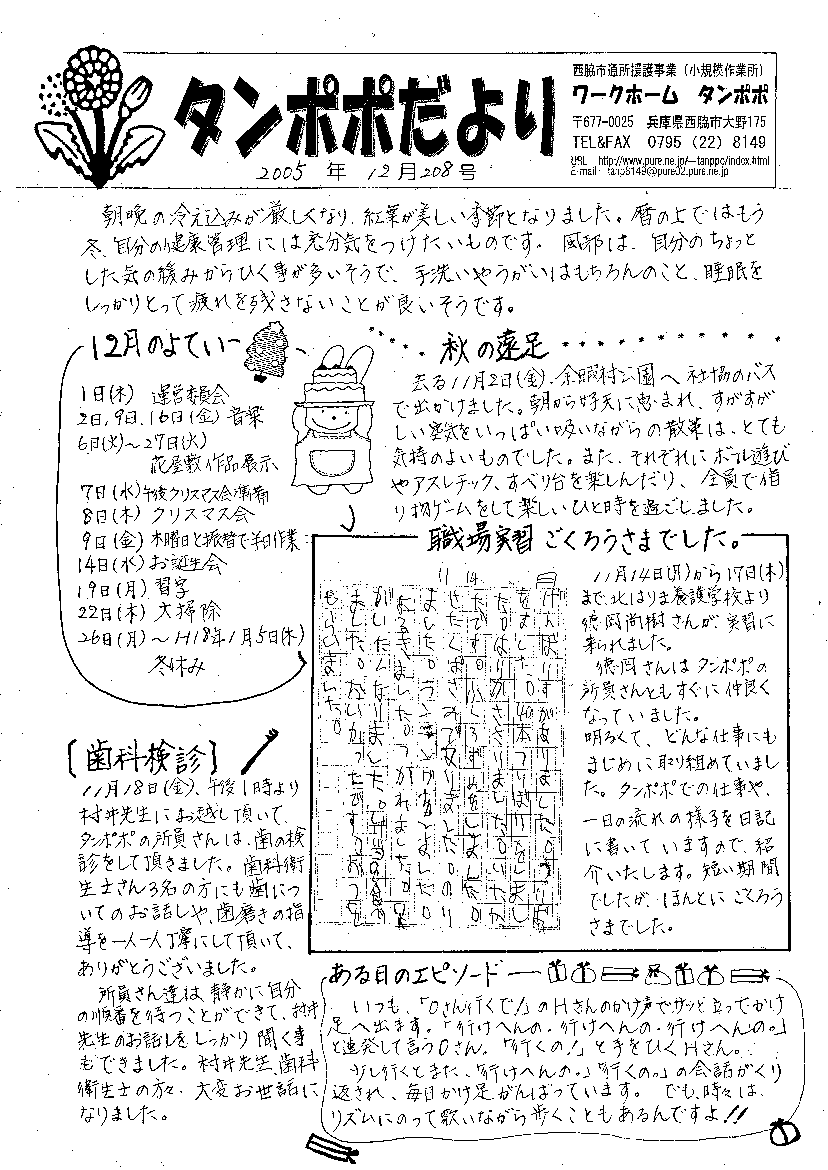 タンポポだより
2005 年 12月 208号
西脇市通所援護事業(小規模作業所)
ワークホーム タンポポ
〒677-0025 兵庫県西脇市大野175
TEL&FAX 0795 (22) 8149
URL http://www.pure.ne.jp/~tanppo/index.html
E-mail tanp8149@pure02.pure.ne.jp
朝晩の冷え込みが厳しくなり、紅葉が美しい季節となりました。暦の上ではもう
冬、自分の健康管理には充分気をつけたいものです。風邪は、自分のちょっと
した気の緩みからひく事が多いそうで、手洗いやうがいはもちろんのこと、睡眠を
しっかりとって疲れを残さないことが良いそうです。
12月のよてい
1日(木) 運営委員会
2日,9日,16日(金) 音楽
6日(火)〜27日(火)
花屋敷作品展示
7日(水)午後クリスマス会準備
8日(木) クリスマス会
9日(金) 木曜日と振替で半日作業
14日(水) お誕生会
19日(月) 習字
22日(木) 大掃除
26日(月)〜H18年1月5日(木)
冬休み
秋の遠足
去る11月2日(金)、余暇村公園へ社協のバス
で出かけました。朝から好天に恵まれ、すがすが
しい空気をいっぱい吸いながらの散策は、とても
気持のよいものでした。また、それぞれにボール遊び
やアスレチック、すべり台を楽しんだり、全員で借
り物ゲームをして楽しいひと時を過ごしました。
職場実習ごくろうさまでした。
11月14日(月)から17日(木)
まで、北はりま養護学校より
徳岡尚樹さんが、実習に
来られました。
徳岡さんはタンポポの
所員さんともすぐに仲良く
なっていました。
明るくて、どんな仕事にも
まじめに取り組めていまし
た。タンポポでの仕事や、
一日の流れの様子を日記
に書いていますので、紹
介いたします。短い期間
でしたが、ほんとにごくろう
さまでした。
[歯科検診]
11月18日(金)、午後1時より
村井先生にお越し頂いて、
タンポポの所員さんは、歯の検
診をして頂きました。歯科衛
生士さん3名の方にも歯につ
いてのお話しや、歯磨きの指
導を一人一人丁寧にして頂いて、
ありがとうございました。
所員さん達は、静かに自分
の順番を待つことができて、村井
先生のお話しをしっかり聞く事
もできました。村井先生、歯科
衛生士の方々、大変お世話に
なりました。
ある日のエピソード
いつも、「Oさん行くで!」のHさんのかけ声でサッと立ってかけ
足へ出ます。「行けへんの・行けへんの・行けへんの。」
と連発して言うOさん。「行くの!」と手をひくHさん。
少し行くとまた、「行けへんの。」「行くの。」の会話がくり
返され、毎日かけ足がんばっています。でも、時々は、
リズムにのって歌いながら歩くこともあるんですよ!!